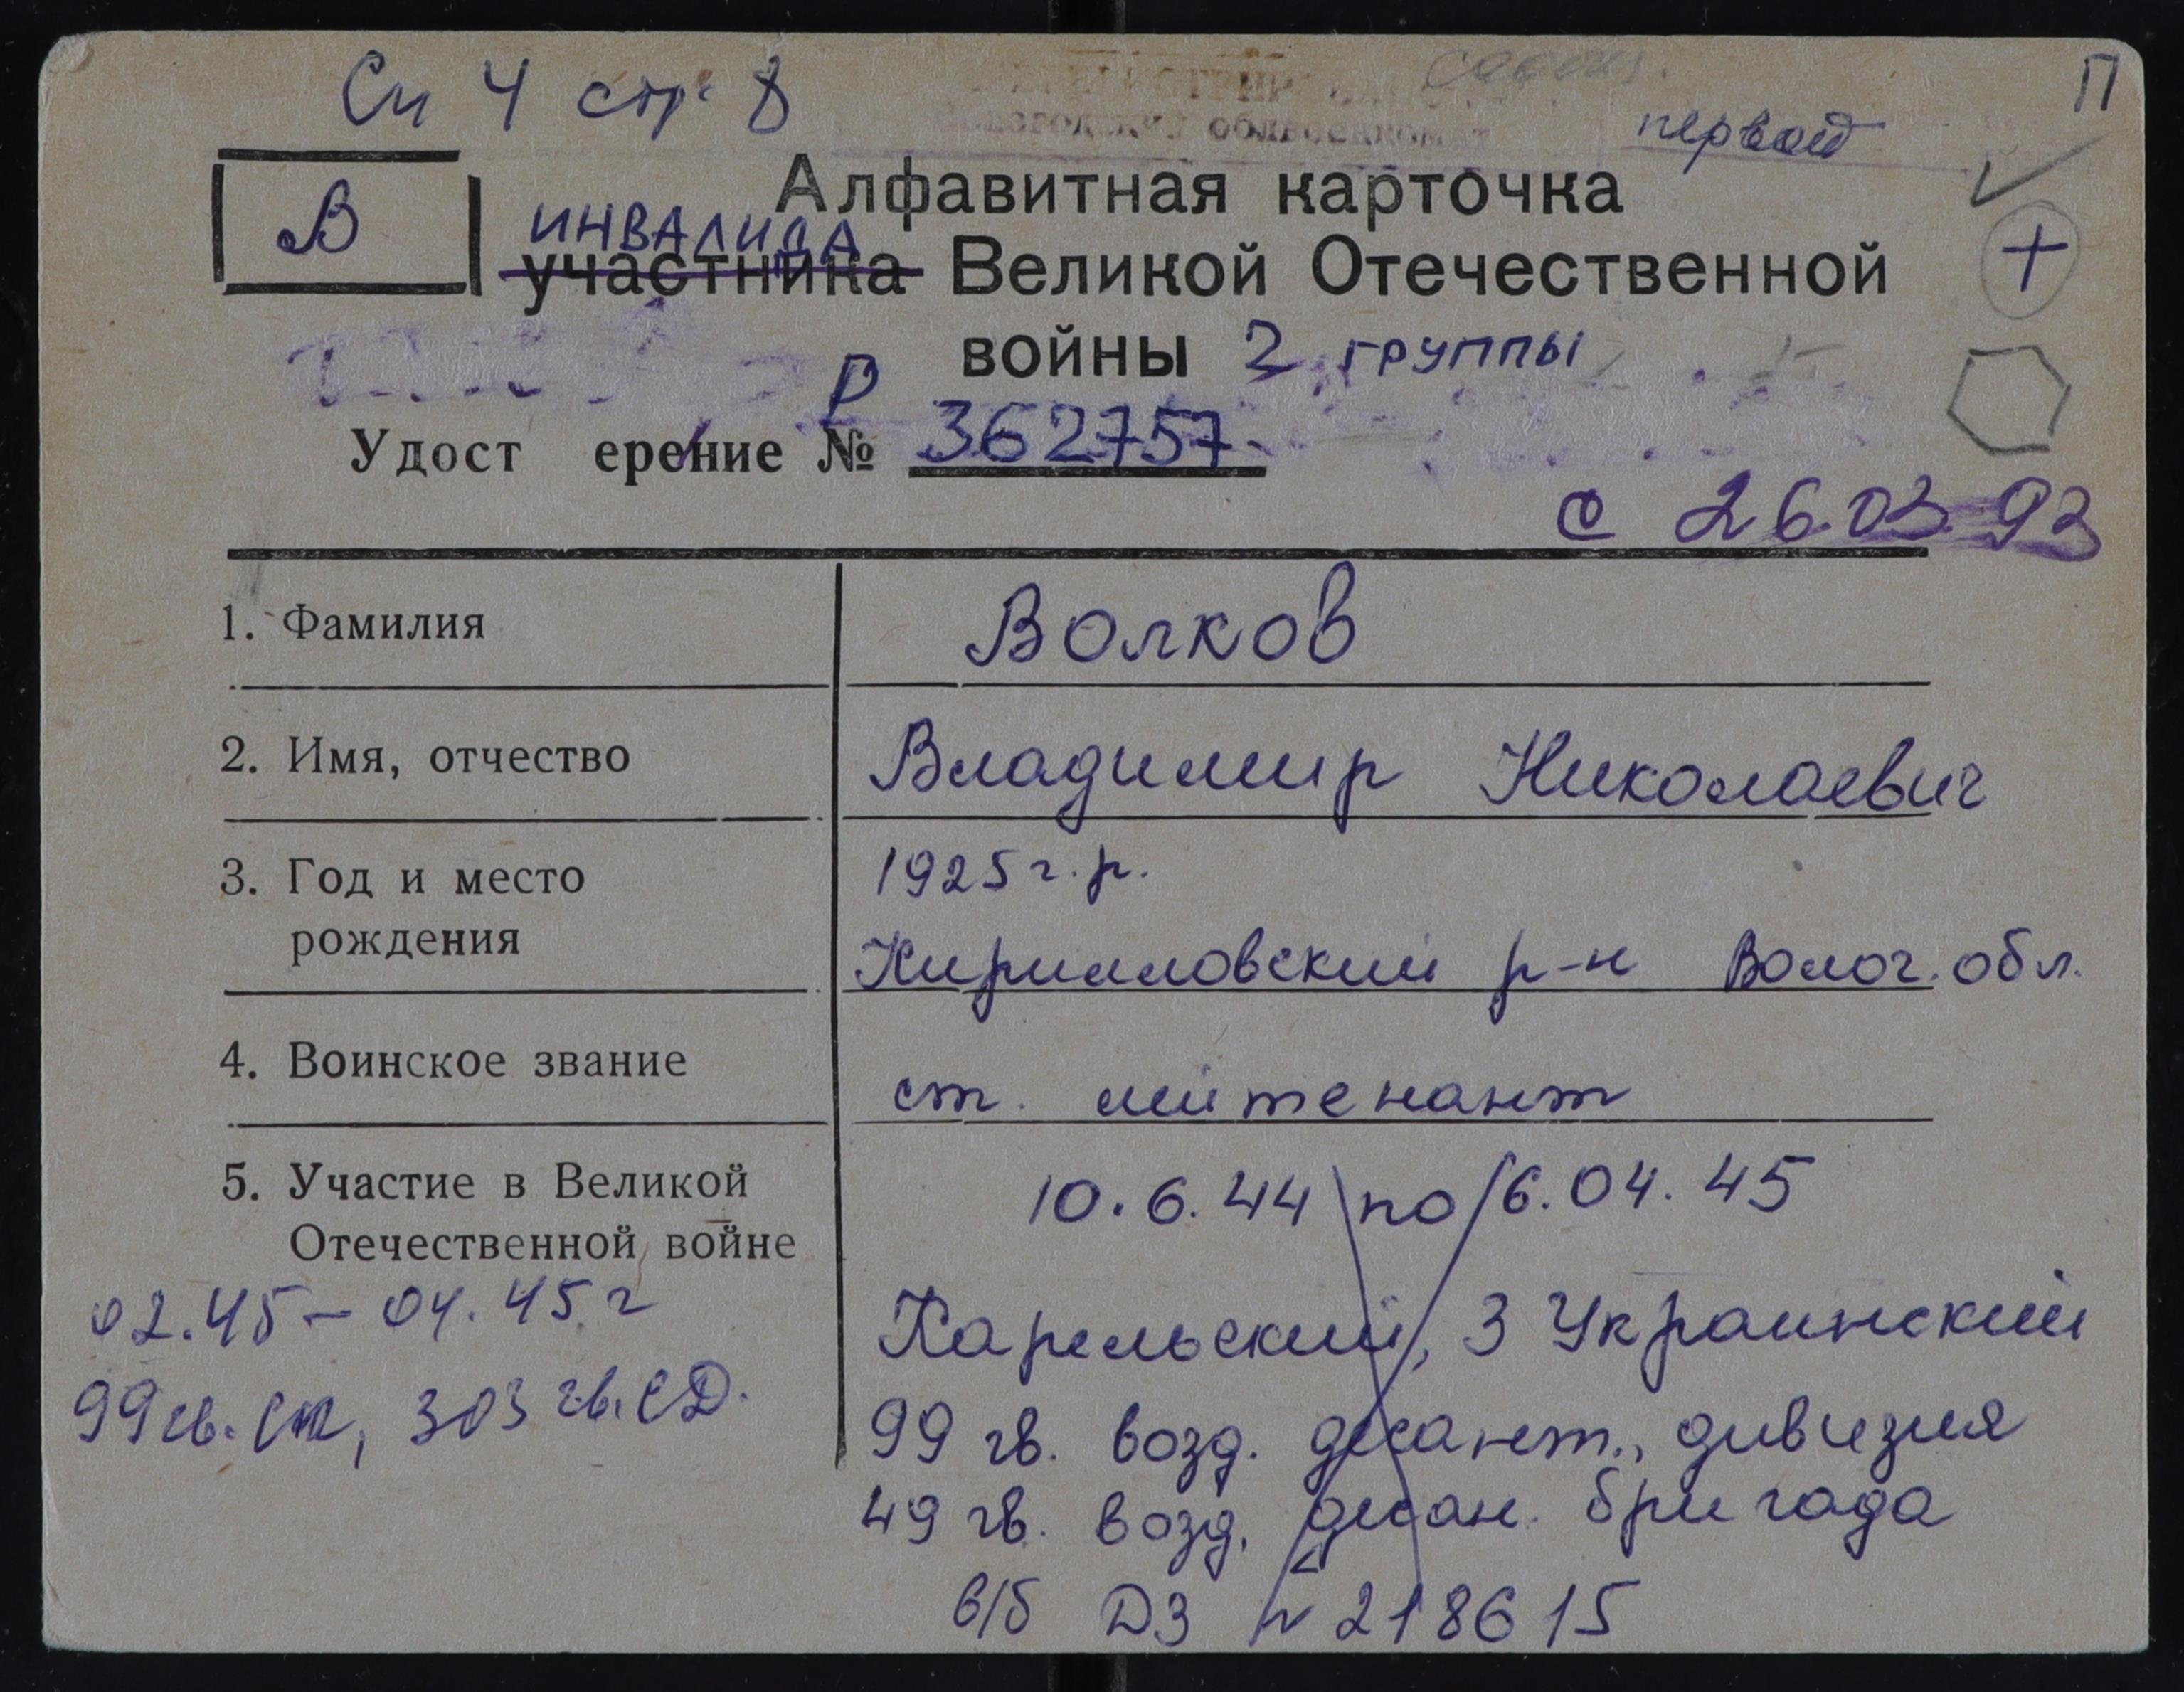 Сп 4 стр 8
П
первой
В
Алфавитная карточка
ИНВАЛИДА
участника Великой Отечественной
войны 2 группы
Р
Удост ерение № 362757
с 26.03.93
1. Фамилия Волков
2. Имя, отчество Владимир Николаевич
3. Год и место 1925 г.р.
рождения Кирилловский р-н Волог. обл.
4. Воинское звание ст. лейтенант
5. Участие в Великой 10.6.44 по 6.04.45
Отечественной войне
02.45 – 04.45 г Карельский, 3 Украинский
99 гв. ск, 303 гв. СД. 99 гв. возд. десант., дивизия
49 гв. возд. десан. бригада
в/б ДЗ № 218615